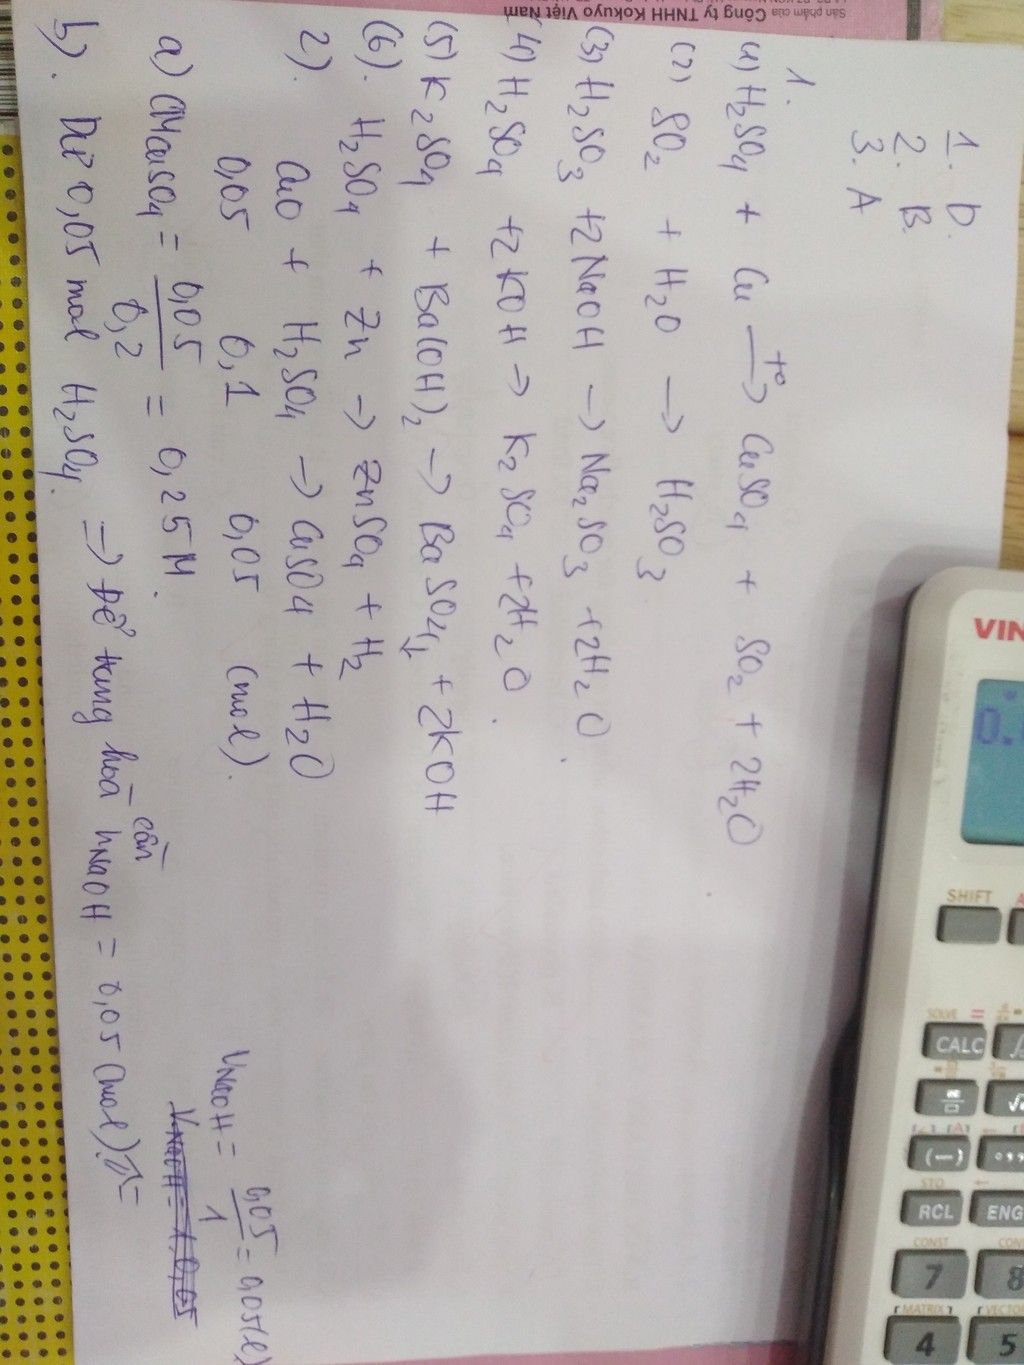 Sản phẩm của Công ty TNHH Kokuyo Việt Nam
1. D.
2. B.
3. A
1.
(1) H2SO4 + Cu t° → CuSO4 + SO2 + 2H2O
(2) SO2 + H2O → H2SO3
(3) H2SO3 + 2NaOH → Na2SO3 + 2H2O.
(4) H2SO4 + 2KOH → K2SO4 + 2H2O.
(5) K2SO4 + Ba(OH)2 → BaSO4↓ + 2KOH
(6). H2SO4 + Zn → ZnSO4 + H2
2).
CuO + H2SO4 → CuSO4 + H2O
0,05 0,1 0,05 (mol).
a) CMCuSO4 = 0,05/0,2 = 0,25M.
b). Dư 0,05 mol H2SO4. ⇒ Để trung hoà cần nNaOH = 0,05 (mol)
VNaOH = 0,05/1 = 0,05(l)
VNaOH = 1.0,05
VIN
0.
SHIFT
A
SOLVE =
CALC
(—)
STO
RCL
ENG
CONST
CON
7
8
MATRIX
VECTOR
4
5